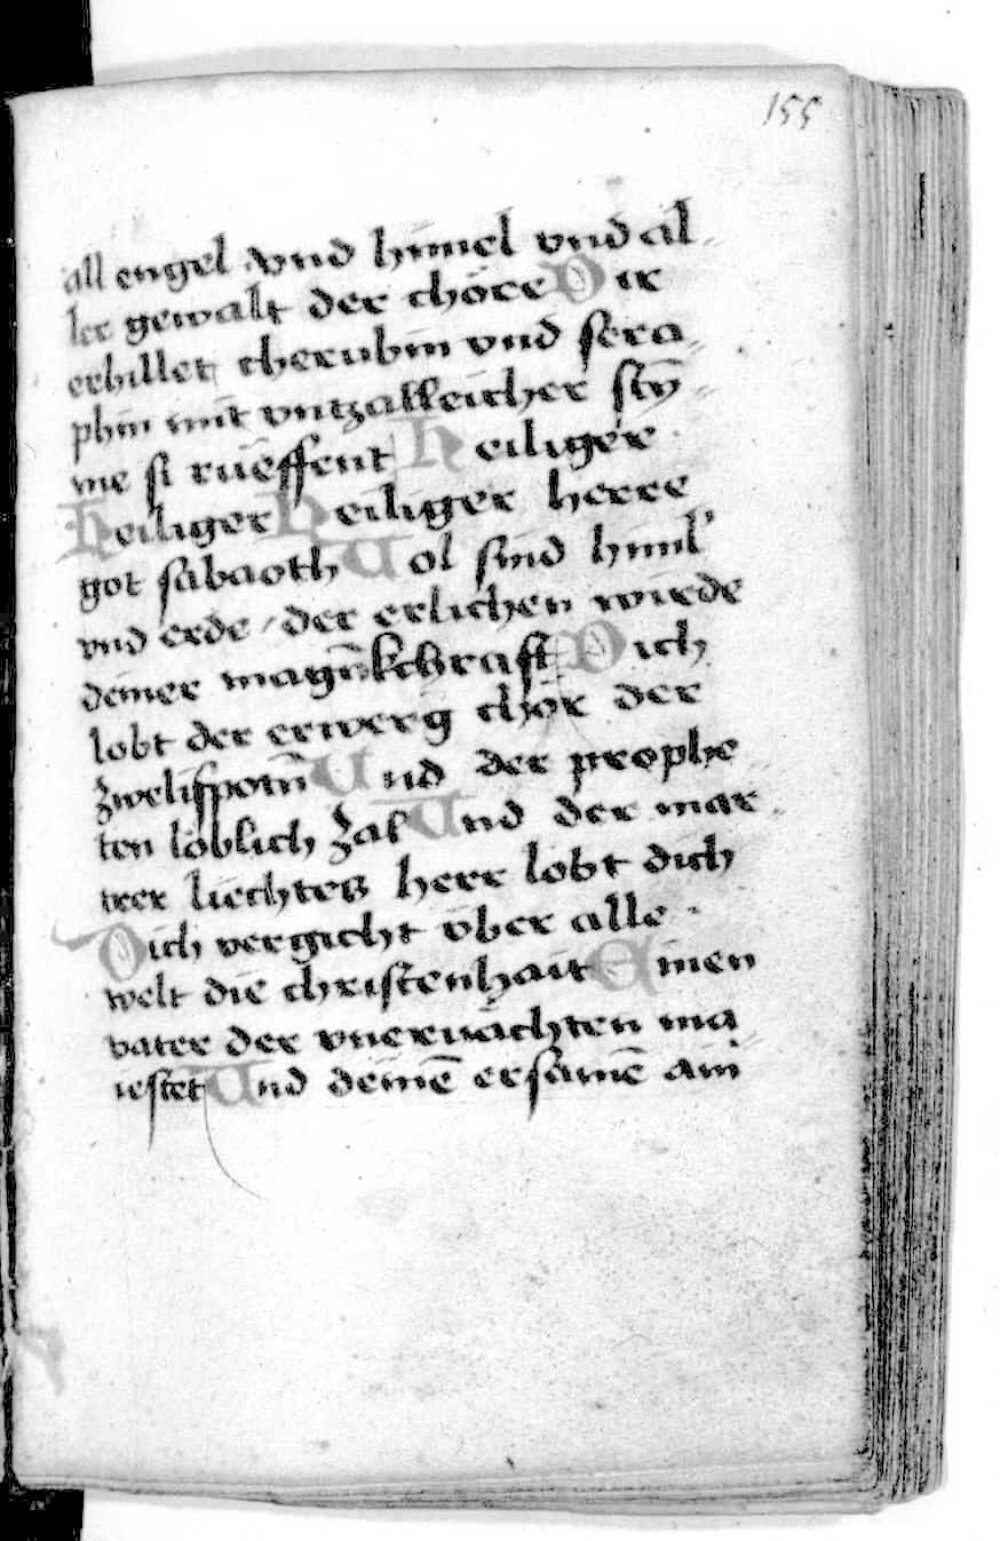 155
all engel vnd himel vnd al„
ler gewalt der chöre Dir
erhillet cherubin vnd sera„
phin mit vntzalleicher sty̅„
me si rüeffent Heiliger
Heiliger Heiliger herre
got sabaoth Uol sind himl'
vnd erde / der erlichen wirde
deiner magn̅kchraft Dich
lobt der erwerg chor der
zwelifpotn̅ Und der prophe
ten löblich zal Und der mar
trer liechtes herr lobt dich
Dich vergicht über alle
welt die christenhait Einen
vater der vneruächten ma„
iestet Und deine̅ ersame̅ ain